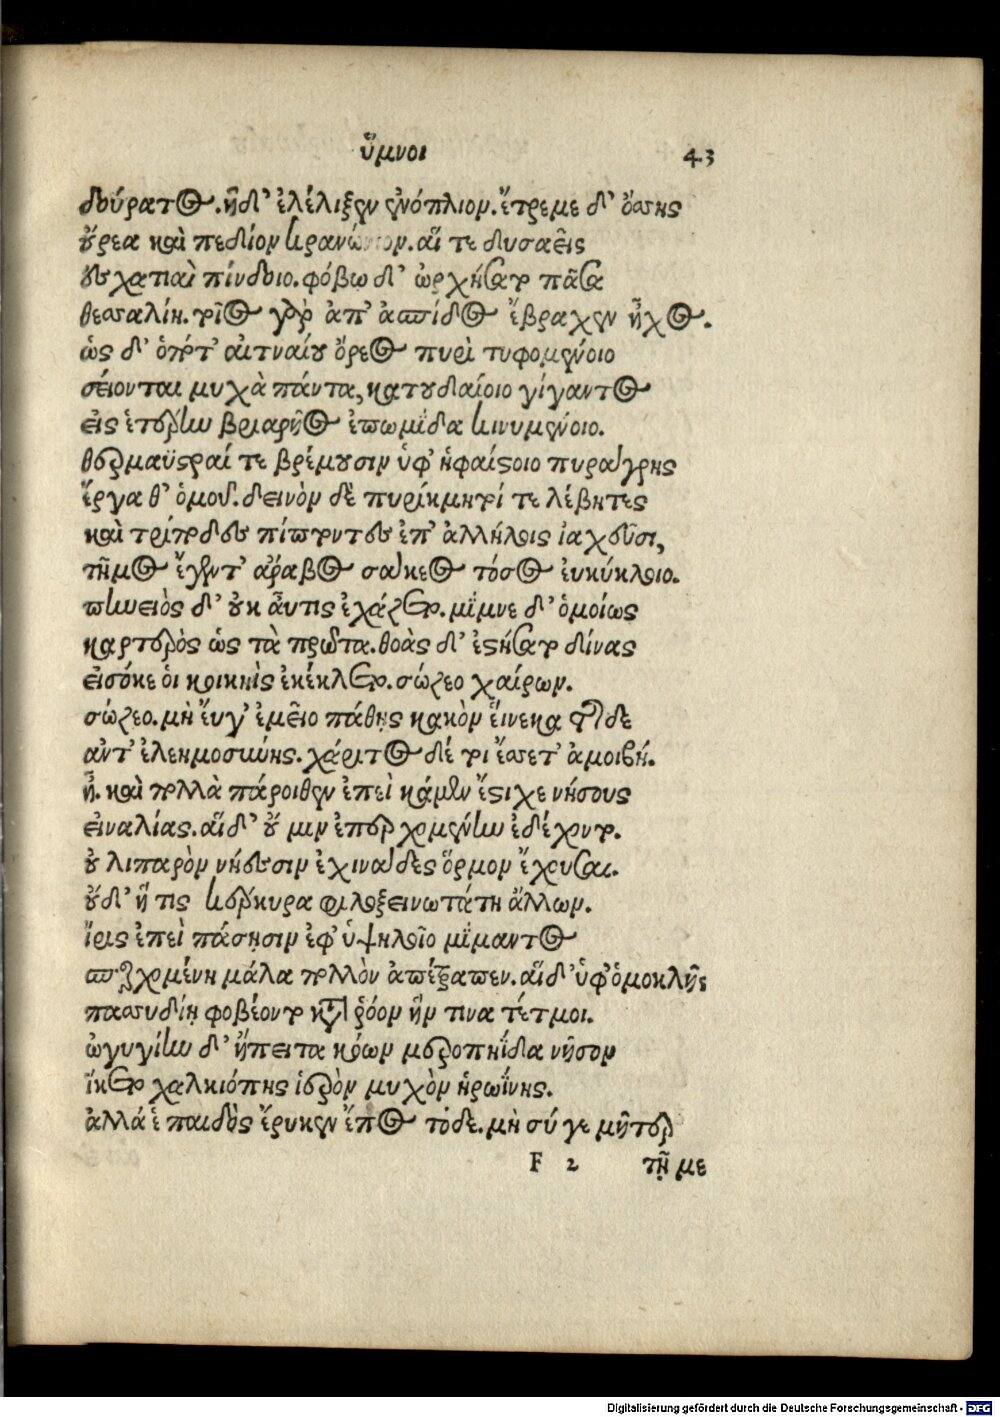 ὕμνοι 43
δούρατος. ἡ δ' ἐλέλιξεν ἐνόπλιον. ἔτρεμε δ' ὄσσης
οὔρεα καὶ πεδίον κρανώνιον. αἵ τε δυσαεῖς
ἐσχατιαὶ πίνδοιο. φόβω δ' ὠρχήσατο πᾶσα
θεσσαλίη. τοῖος γὰρ ἀπ' ἀσπίδος ἔβραχεν ἦχος.
ὡς δ' ὁπότ' αἰτναίου ὄρεος πυρὶ τυφομένοιο
σείονται μυχὰ πάντα, κατουδαίοιο γίγαντος
εἰς ἑτέρην βριαρῆος ἐπωμίδα κινυμένοιο.
θερμαϋστραί τε βρέμουσιν ὑφ' ἡφαίστοιο πυράγρης
ἔργα θ' ὁμοῦ. δεινὸν δὲ πυρίκμητοί τε λέβητες
καὶ τρίποδες πίπτοντες ἐπ' ἀλλήλοις ἰαχεῦσι,
τῆμος ἔγεντ' ἄραβος σάκεος τόσος εὐκύκλοιο.
πηνειὸς δ' οὐκ αὖτις ἐχάζετο. μίμνε δ' ὁμοίως
καρτερὸς ὡς τὰ πρῶτα. θοὰς δ' ἐστήσατο δίνας
εἰσόκε οἱ κοικηῒς ἐκέκλετο. σώζεο χαίρων.
σώζεο. μὴ σύγ' ἐμεῖο πάθης κακὸν εἵνεκα τῆσδε
ἀντ' ἐλεημοσύνης. χάριτος δέ τοι ἔσσετ' ἀμοιβή.
ἦ. καὶ πολλὰ πάροιθεν ἐπεὶ κάμεν ἔστιχε νήσους
εἰναλίας. αἱ δ' οὔ μιν ἐπερχομένην ἐδέχοντο.
οὐ λιπαρὸν νήεσσιν ἐχινάδες ὅρμον ἔχουσαι.
οὐδ' ἥ τις κέρκυρα φιλοξεινωτάτη ἄλλων.
ἶρις ἐπεὶ πάσησιν ἐφ' ὑψηλοῖο μίμαντος
σπερχομένη μάλα πολλὸν ἀπέτραπεν. αἱ δ' ὑφ' ὁμοκλῆς
πασσυδίη φοβέοντο κατὰ ῥόον ἥν τινα τέτμοι.
ὠγυγίην δ' ἤπειτα κόων μεροπηΐδα νῆσον
ἵκετο χαλκιόπης ἱερὸν μυχὸν ἡρωΐνης.
ἀλλά ἑ παιδὸς ἔρυκεν ἔπος τόδε. μὴ σύ γε μῆτερ
F 2 τῇ με
Digitalisierung gefördert durch die Deutsche Forschungsgemeinschaft - DFG